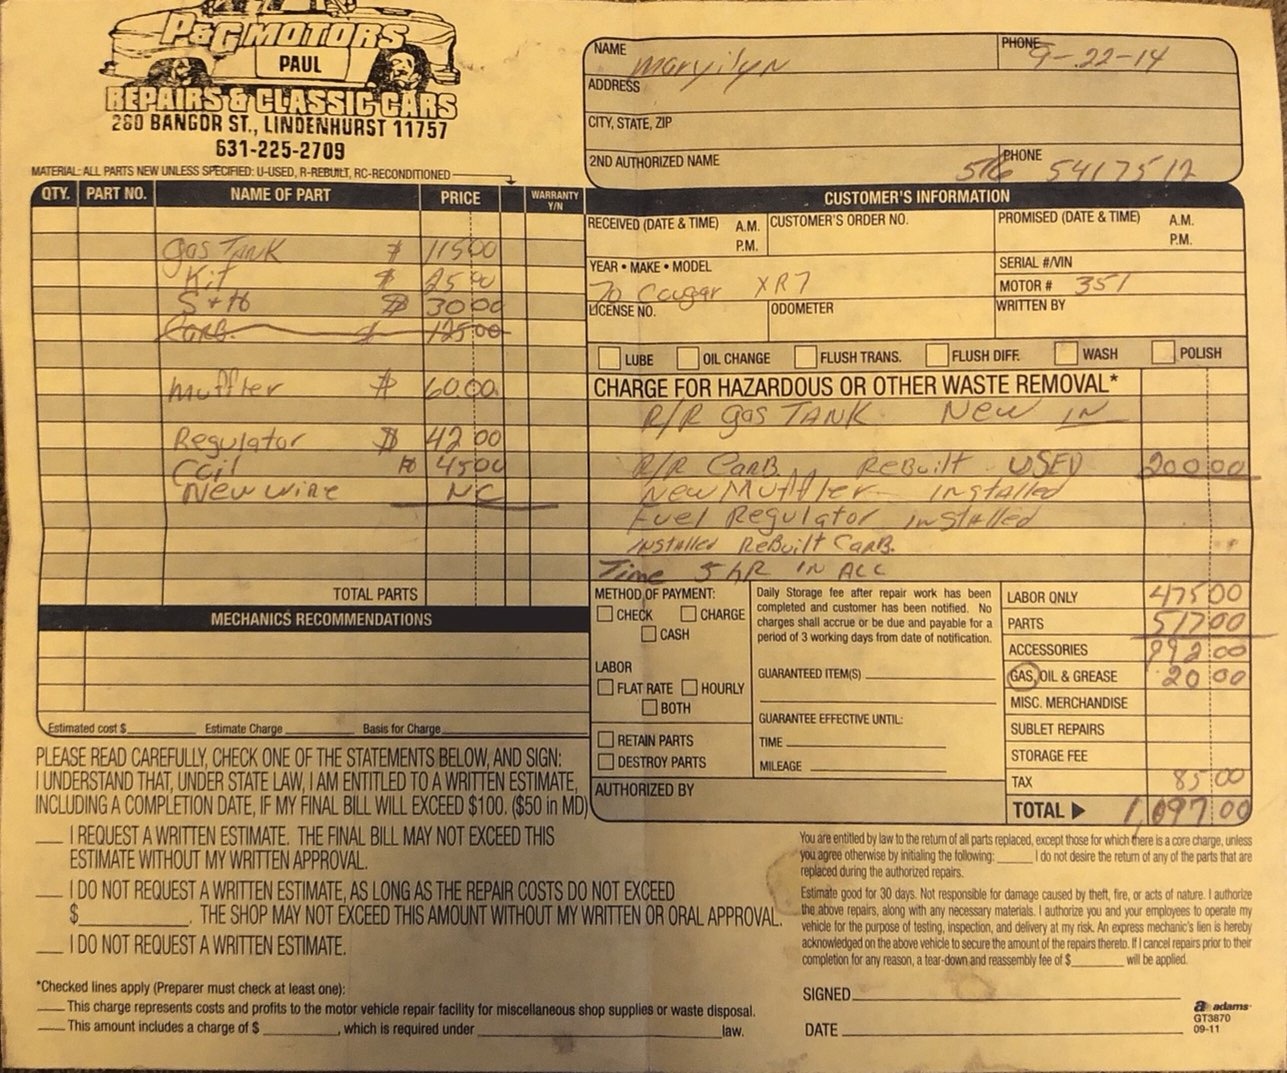 P&G MOTORS
PAUL
REPAIRS & CLASSIC CARS
280 BANGOR ST., LINDENHURST 11757
631-225-2709
NAME Maryilyn
PHONE 9-22-14
ADDRESS
CITY, STATE, ZIP
2ND AUTHORIZED NAME
PHONE 516 5417512
MATERIAL: ALL PARTS NEW UNLESS SPECIFIED: U-USED, R-REBUILT, RC-RECONDITIONED
QTY. PART NO. NAME OF PART PRICE WARRANTY Y/N
gas TANK $ 115 00
Kit $ 25 00
S + H $ 30 00
Carb. $ 125 00
Muffler $ 60.00
Regulator $ 42 00
Coil 45 00
New wire NC
TOTAL PARTS
MECHANICS RECOMMENDATIONS
Estimated cost $ Estimate Charge Basis for Charge
CUSTOMER'S INFORMATION
RECEIVED (DATE & TIME) A.M. P.M.
CUSTOMER'S ORDER NO.
PROMISED (DATE & TIME) A.M. P.M.
YEAR • MAKE • MODEL
70 Cougar XR7
SERIAL #/VIN
MOTOR # 351
LICENSE NO.
ODOMETER
WRITTEN BY
LUBE OIL CHANGE FLUSH TRANS. FLUSH DIFF. WASH POLISH
CHARGE FOR HAZARDOUS OR OTHER WASTE REMOVAL*
R/R gas TANK New IN
R/R CARB. ReBuilt USED 200 00
New Muffler Installed
Fuel Regulator Installed
Installed ReBuilt CARB.
Time 5 hR IN ALL
METHOD OF PAYMENT:
CHECK CHARGE
CASH
LABOR
FLAT RATE HOURLY
BOTH
RETAIN PARTS
DESTROY PARTS
AUTHORIZED BY
Daily Storage fee after repair work has been
completed and customer has been notified. No
charges shall accrue or be due and payable for a
period of 3 working days from date of notification.
GUARANTEED ITEM(S)
GUARANTEE EFFECTIVE UNTIL:
TIME
MILEAGE
LABOR ONLY 475 00
PARTS 517 00
ACCESSORIES 992 00
GAS, OIL & GREASE 20 00
MISC. MERCHANDISE
SUBLET REPAIRS
STORAGE FEE
TAX 85 00
TOTAL ▶ 1,097 00
PLEASE READ CAREFULLY, CHECK ONE OF THE STATEMENTS BELOW, AND SIGN:
I UNDERSTAND THAT, UNDER STATE LAW, I AM ENTITLED TO A WRITTEN ESTIMATE,
INCLUDING A COMPLETION DATE, IF MY FINAL BILL WILL EXCEED $100. ($50 in MD)
I REQUEST A WRITTEN ESTIMATE. THE FINAL BILL MAY NOT EXCEED THIS
ESTIMATE WITHOUT MY WRITTEN APPROVAL.
I DO NOT REQUEST A WRITTEN ESTIMATE, AS LONG AS THE REPAIR COSTS DO NOT EXCEED
$ . THE SHOP MAY NOT EXCEED THIS AMOUNT WITHOUT MY WRITTEN OR ORAL APPROVAL.
I DO NOT REQUEST A WRITTEN ESTIMATE.
*Checked lines apply (Preparer must check at least one):
This charge represents costs and profits to the motor vehicle repair facility for miscellaneous shop supplies or waste disposal.
This amount includes a charge of $ , which is required under law.
You are entitled by law to the return of all parts replaced, except those for which there is a core charge, unless
you agree otherwise by initialing the following: I do not desire the return of any of the parts that are
replaced during the authorized repairs.
Estimate good for 30 days. Not responsible for damage caused by theft, fire, or acts of nature. I authorize
the above repairs, along with any necessary materials. I authorize you and your employees to operate my
vehicle for the purpose of testing, inspection, and delivery at my risk. An express mechanic's lien is hereby
acknowledged on the above vehicle to secure the amount of the repairs thereto. If I cancel repairs prior to their
completion for any reason, a tear-down and reassembly fee of $ will be applied.
SIGNED
DATE
adams
GT3870
09-11